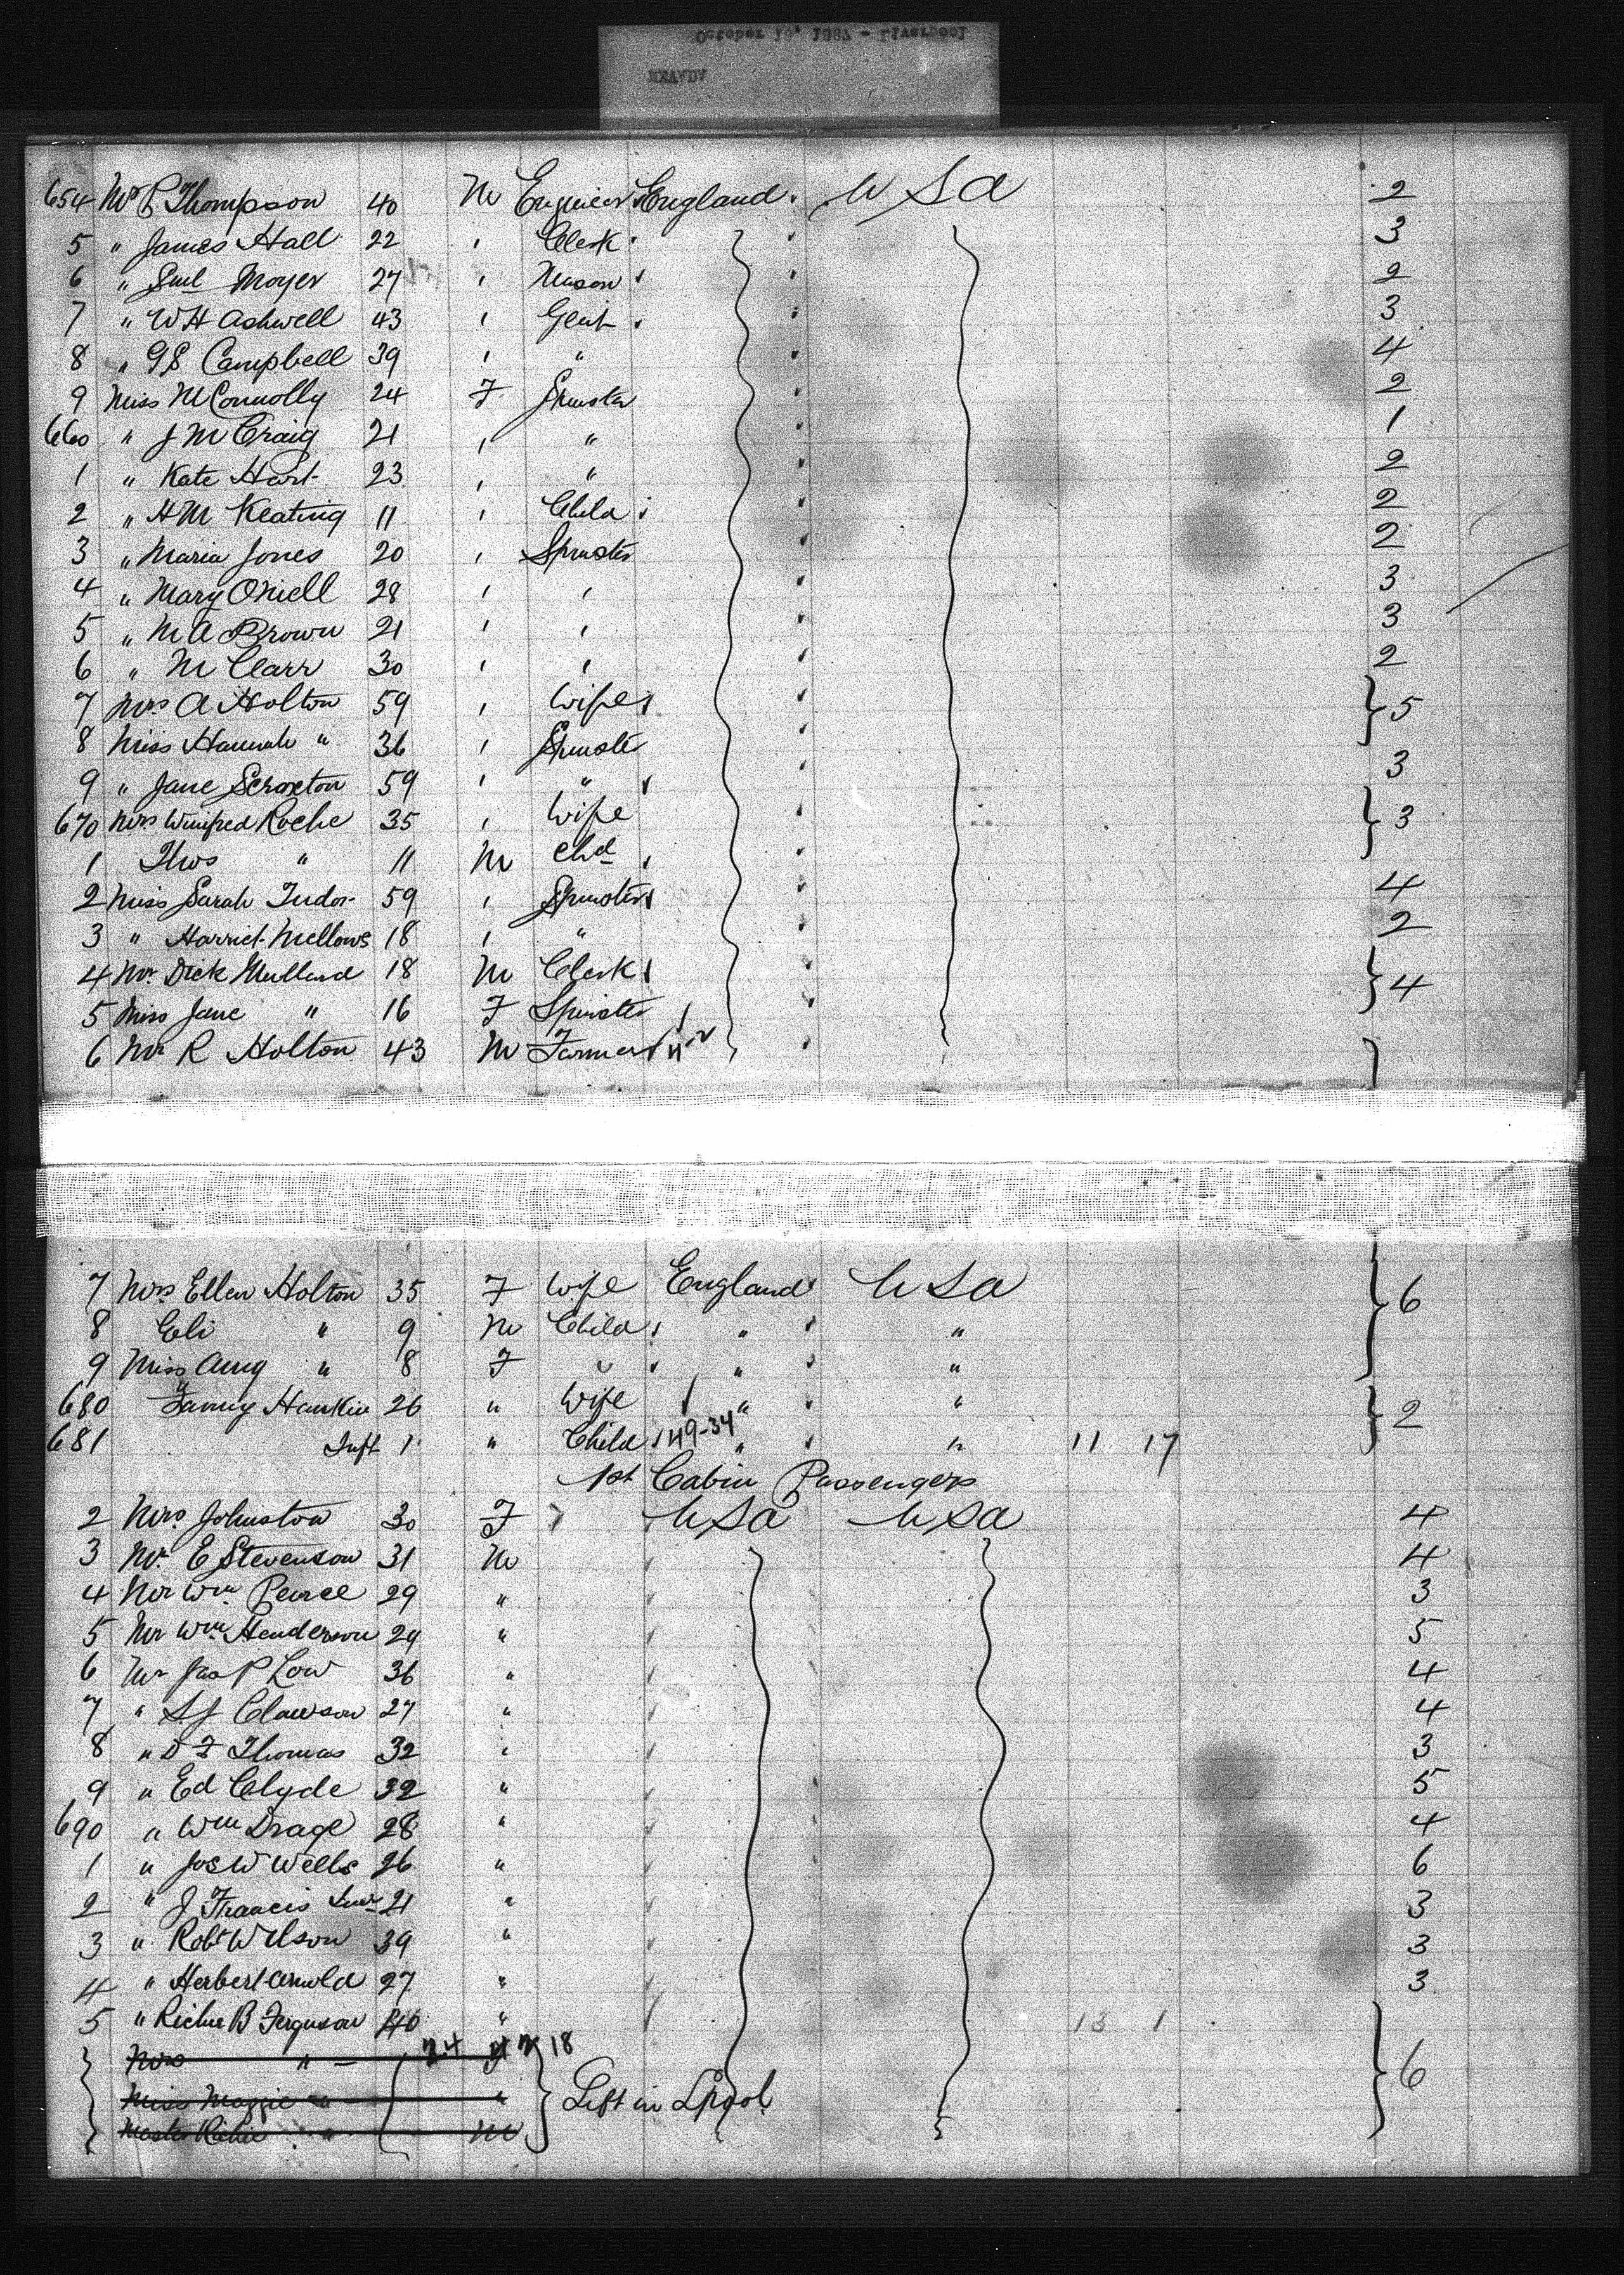 October 19, 1887 - Liverpool
NEVADA
654 Mr P Thompson 40 M Engineer England USA 2
5 " James Hall 22 ' Clerk 3
6 " Saml Moyer 27 ' Mason 2
7 " WH Ashwell 43 ' Gent 3
8 " GS Campbell 39 ' " 4
9 Miss M Connolly 24 F Spinster 2
660 " J M Craig 21 ' " 1
1 " Kate Hart 23 ' " 2
2 " HM Keating 11 ' Child 2
3 " Maria Jones 20 ' Spinster 2
4 " Mary Oniell 28 ' ' 3
5 " M A Brown 21 ' ' 3
6 " M Clarr 30 ' ' 2
7 Mrs A Holton 59 ' Wife } 5
8 Miss Hannah " 36 ' Spinster
9 " Jane Scroxton 59 ' " 3
670 Mrs Winifred Roche 35 ' Wife } 3
1 Thos " 11 M Chd
2 Miss Sarah Tudor 59 ' Spinster 4
3 " Harriet Mellows 18 ' " 2
4 Mr. Dick Mullard 18 M Clerk } 4
5 Miss Jane " 16 F Spinster
6 Mr R Holton 43 M Farmer
7 Mrs Ellen Holton 35 F Wife England USA } 6
8 Eli " 9 M Child " "
9 Miss Amy " 8 F " " "
680 " Fanny Hankin 26 " Wife " " } 2
681 Inft 1 " Child 149-34 " " 11 17
1st Cabin Passengers
2 Mrs. Johnston 30 F USA USA 4
3 Mr. E Stevenson 31 M 4
4 Mr Wm Pearce 29 " 3
5 Mr Wm Henderson 29 " 5
6 Mr Jas P Low 36 " 4
7 " S J Clawson 27 " 4
8 " D F Thomas 32 " 3
9 " Ed Clyde 32 " 5
690 " Wm Drage 28 " 4
1 " Jos W Wells 26 " 6
2 " J Francis 21 " 3
3 " Robt Wilson 39 " 3
4 " Herbert Arnold 27 " 3
5 " Richie B Ferguson 40 " 13 1 } 6
Mrs " 24 F 18
Miss Maggie " " Left in Lpool
Master Richie " M